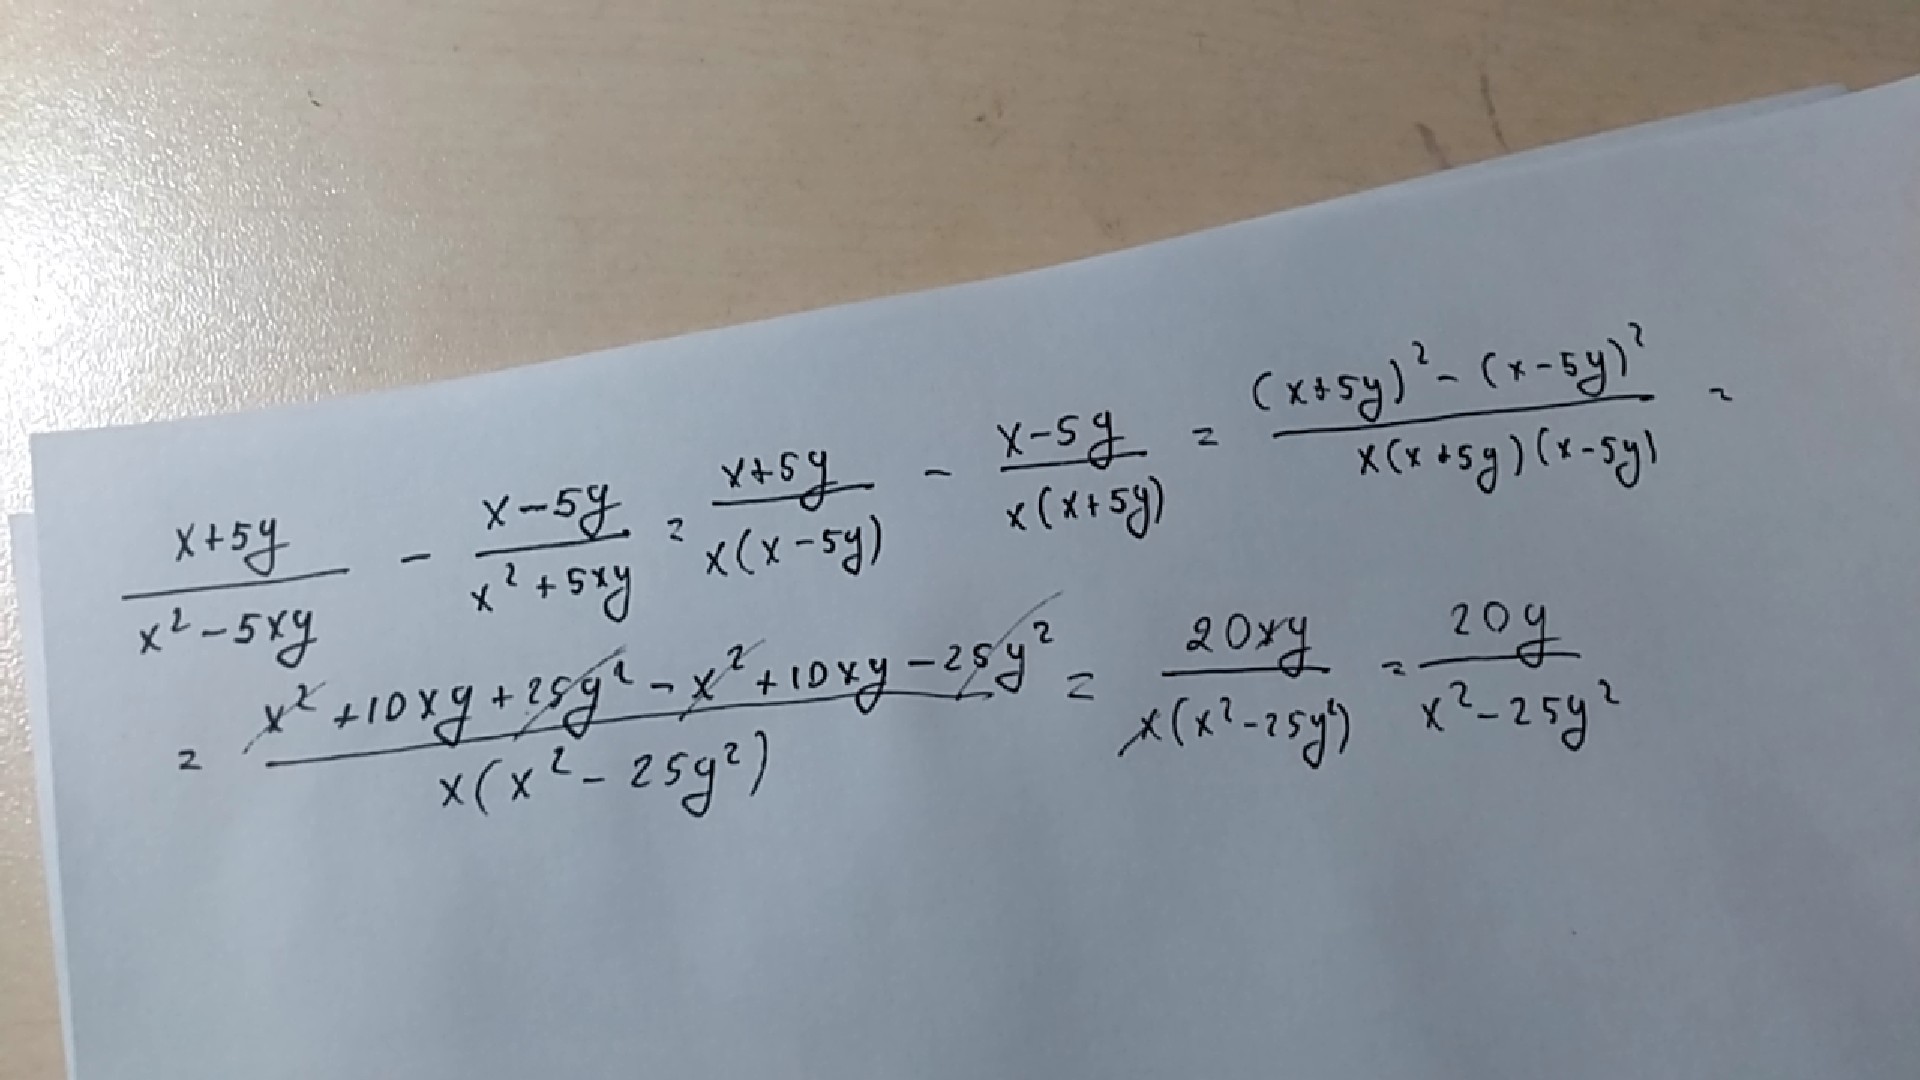 (x+5y)/(x²-5xy) - (x-5y)/(x²+5xy) = (x+5y)/(x(x-5y)) - (x-5y)/(x(x+5y)) = ((x+5y)²-(x-5y)²)/(x(x+5y)(x-5y)) =
= (x²+10xy+25y²-x²+10xy-25y²)/(x(x²-25y²)) = 20xy/(x(x²-25y²)) = 20y/(x²-25y²)